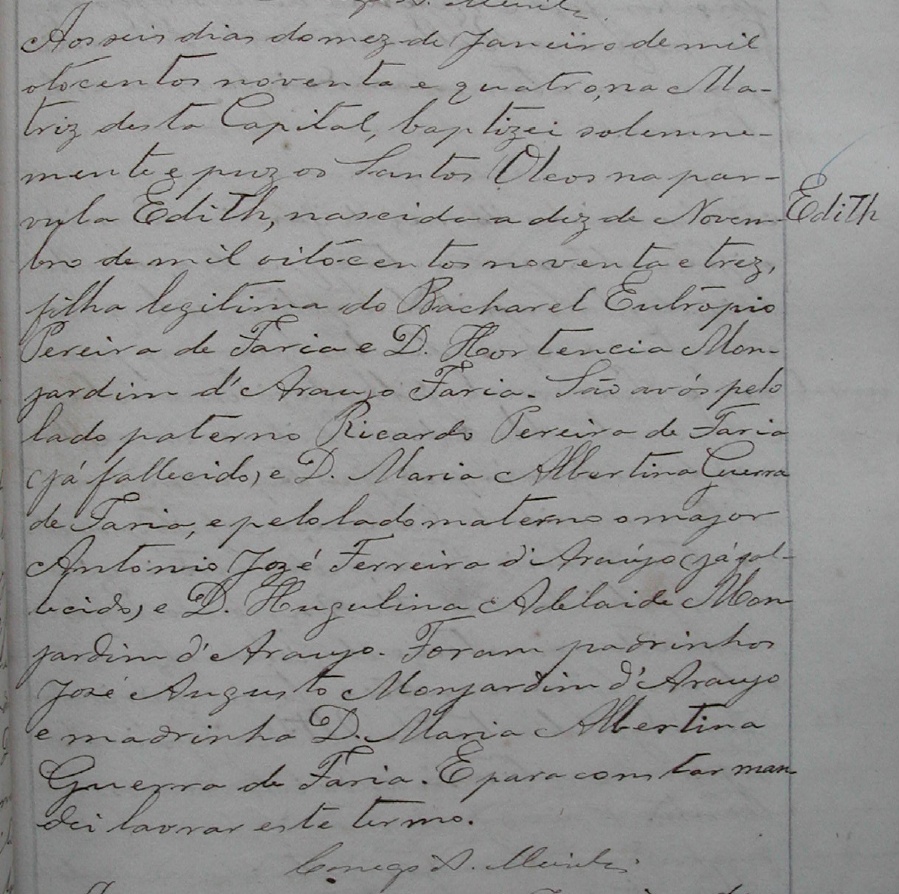 Aos seis dias do mez de Janeiro de mil
oitocentos noventa e quatro, na Ma-
triz desta Capital, baptizei solemne-
mente e puz os Santos Oleos na par-
vula Edith, nascida a diz de Novem-
Edith
bro de mil oitócentos noventa e trez,
filha legitima do Bacharel Eutrópio
Pereira de Faria e D. Hortencia Mon-
jardim d'Araujo Faria. São avós pelo
lado paterno Ricardo Pereira de Faria
(já fallecido) e D. Maria Albertina Guerra
de Faria, e pelo lado materno o major
António José Ferreira d'Araújo (já fal-
lecido) e D. Hugulina Adelaide Mon
jardim d'Araujo. Foram padrinhos
José Augusto Monjardim d'Araujo
e madrinha D. Maria Albertina
Guerra de Faria. E para constar man
dei lavrar este termo.
Conego A.